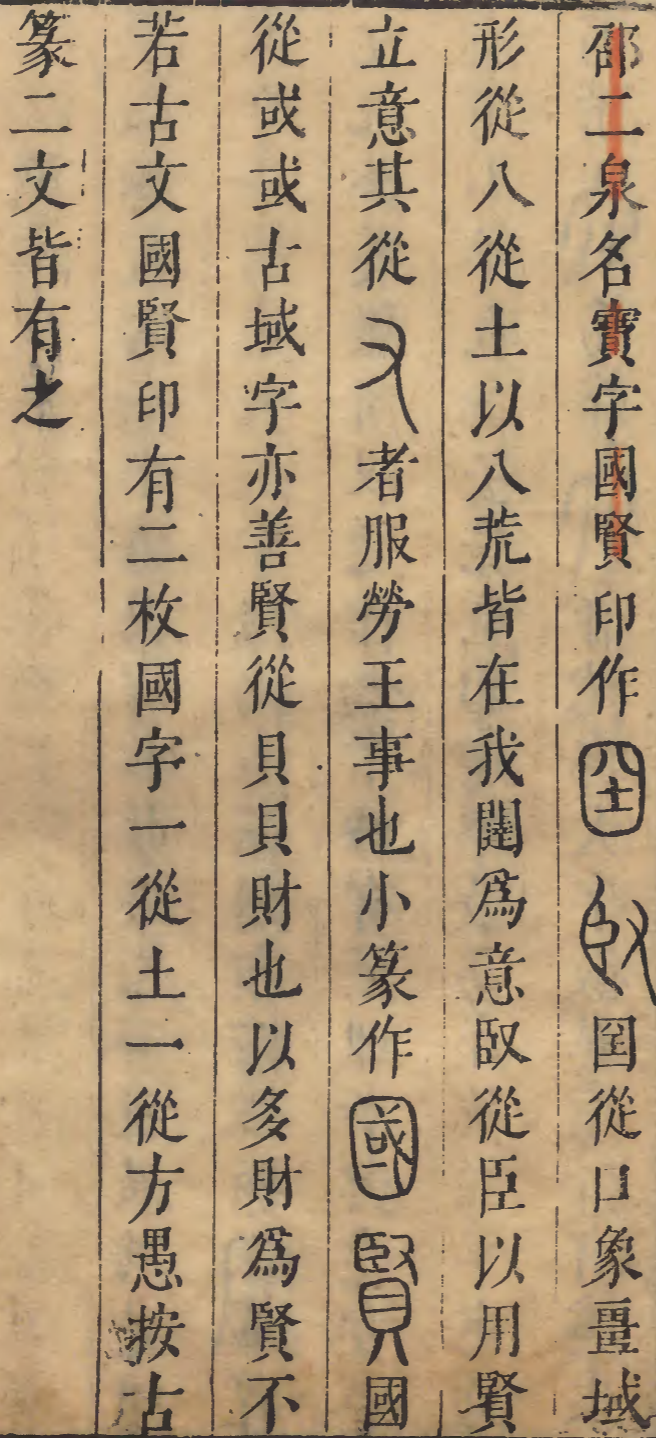 邵二泉名寶字國賢印作𡆸臤囶從囗象畺域
形從八從土以八荒皆在我闥爲意臤從臣以用賢
立意其從又者服勞王事也小篆作國賢國
從或或古域字亦善賢從貝貝財也以多財爲賢不
若古文國賢印有二枚國字一從土一從方愚按古
篆二文皆有之